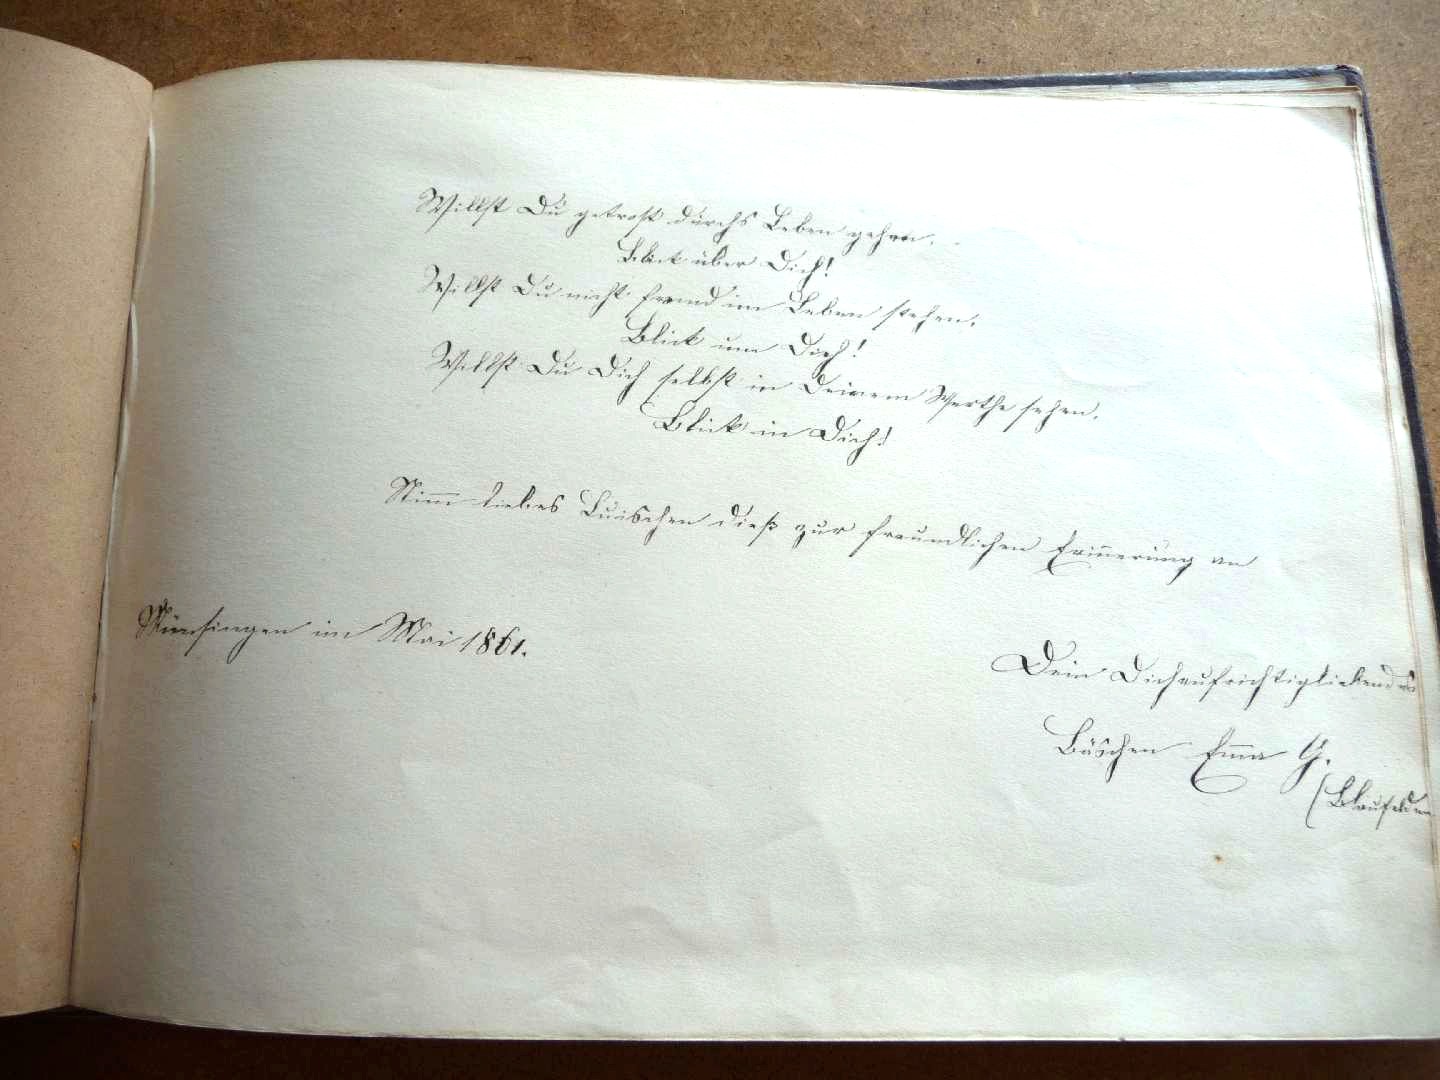 Willst Du getrost durchs Leben gehen,
Blick über Dich!
Willst Du nicht fremd im Leben stehen,
Blick um Dich!
Willst Du Dich selbst in Deinem Werthe sehen,
Blick in Dich!
Nimm liebes Luischen dieß zur freundlichen Erinnerung an
Münsingen im Mai 1861.
Dein Dich aufrichtig liebendes
Bäschen Emma G.
(Blaufelden